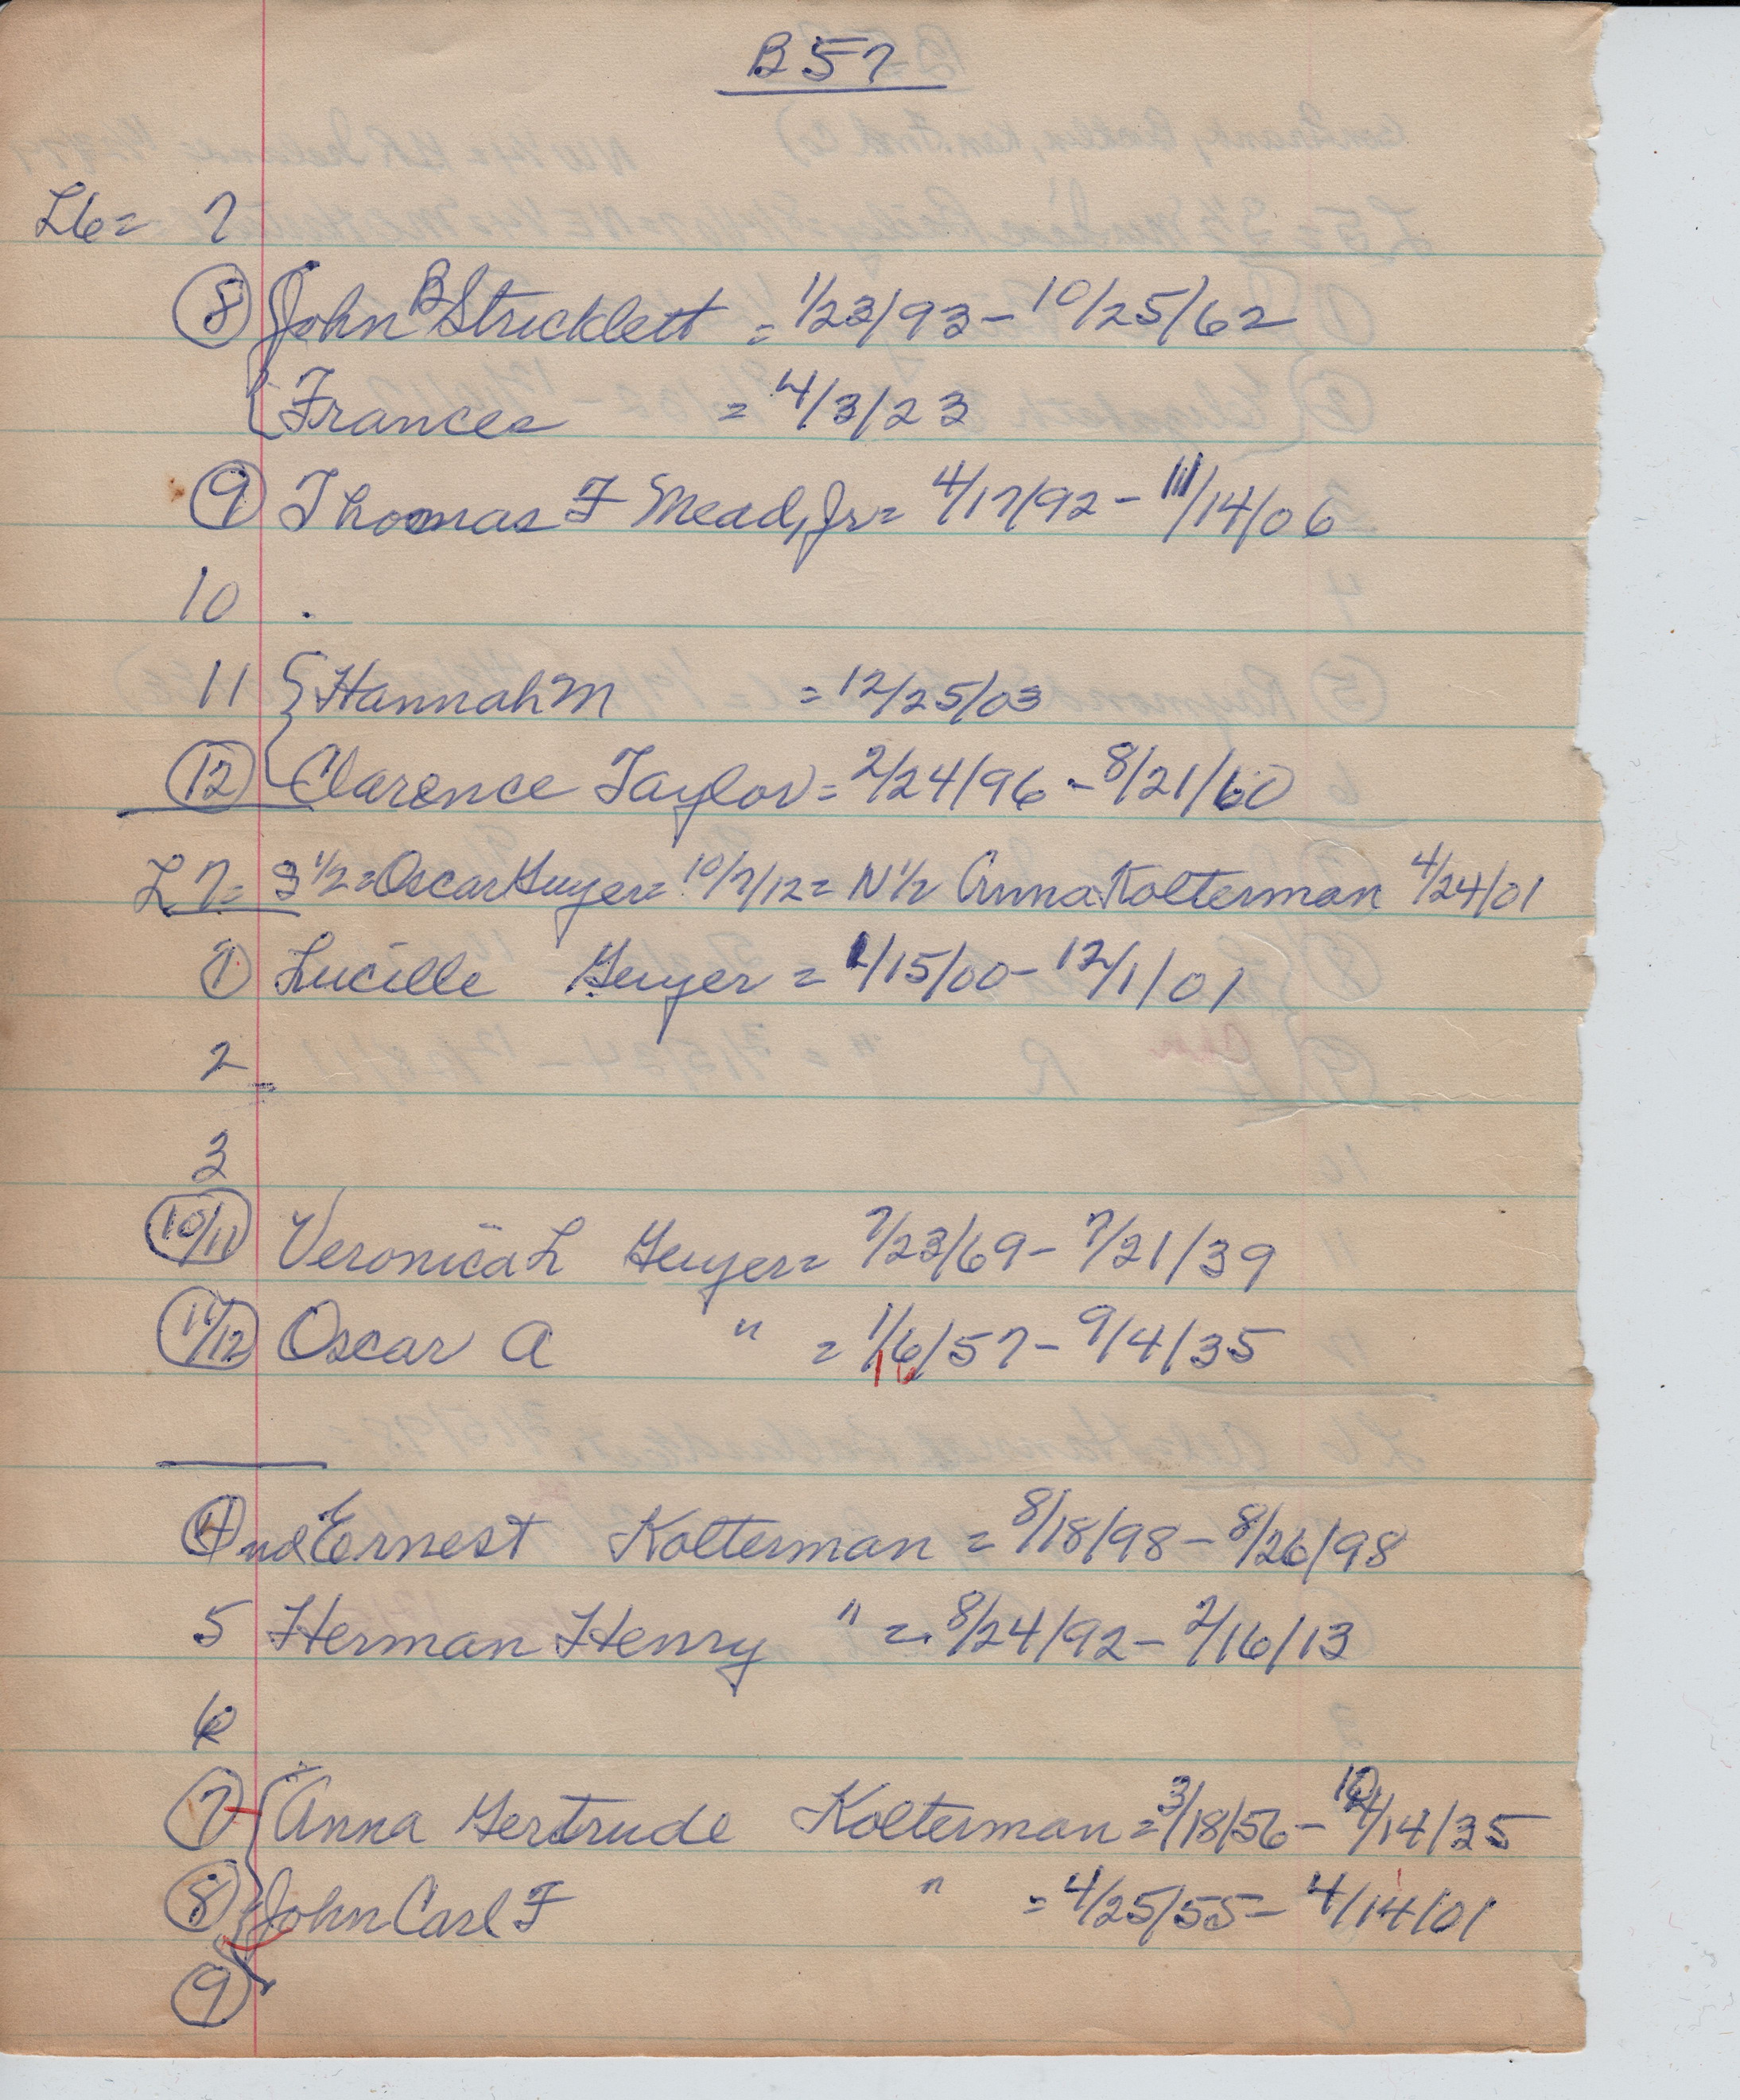 B 57
L6= 7
8 John B Stricklett = 1/23/93 - 10/25/62
Frances = 4/3/23
9 Thomas F Mead, Jr = 4/17/92 - 11/14/06
10 .
11 Hannah M = 12/25/03
12 Clarence Taylor = 2/24/96 - 8/21/60
L7= S 1/2 = Oscar Guyer = 10/7/12 = N 1/2 Anna Kolterman 4/24/01
1 Lucille Guyer = 1/15/00 - 12/1/01
2
3
10/11 Veronica L Guyer = 7/23/69 - 7/21/39
11/12 Oscar A " = 1/6/57 - 9/4/35
4 Ernest Kolterman = 8/18/98 - 8/26/98
5 Herman Henry " = 8/24/92 - 2/16/13
6
7 Anna Gertrude Kolterman = 3/18/56 - /14/35
8 John Carl F " = 4/25/55 - 4/14/01
9